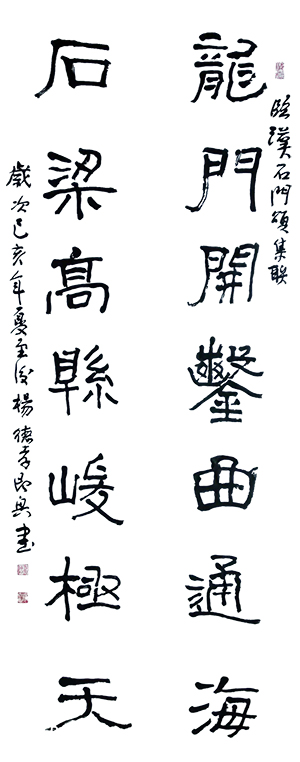 臨漢石門頌集聯
龍門開鑿曲通海
石梁髙縣峻極天
歲次己亥年夏至後楊德孝即興書